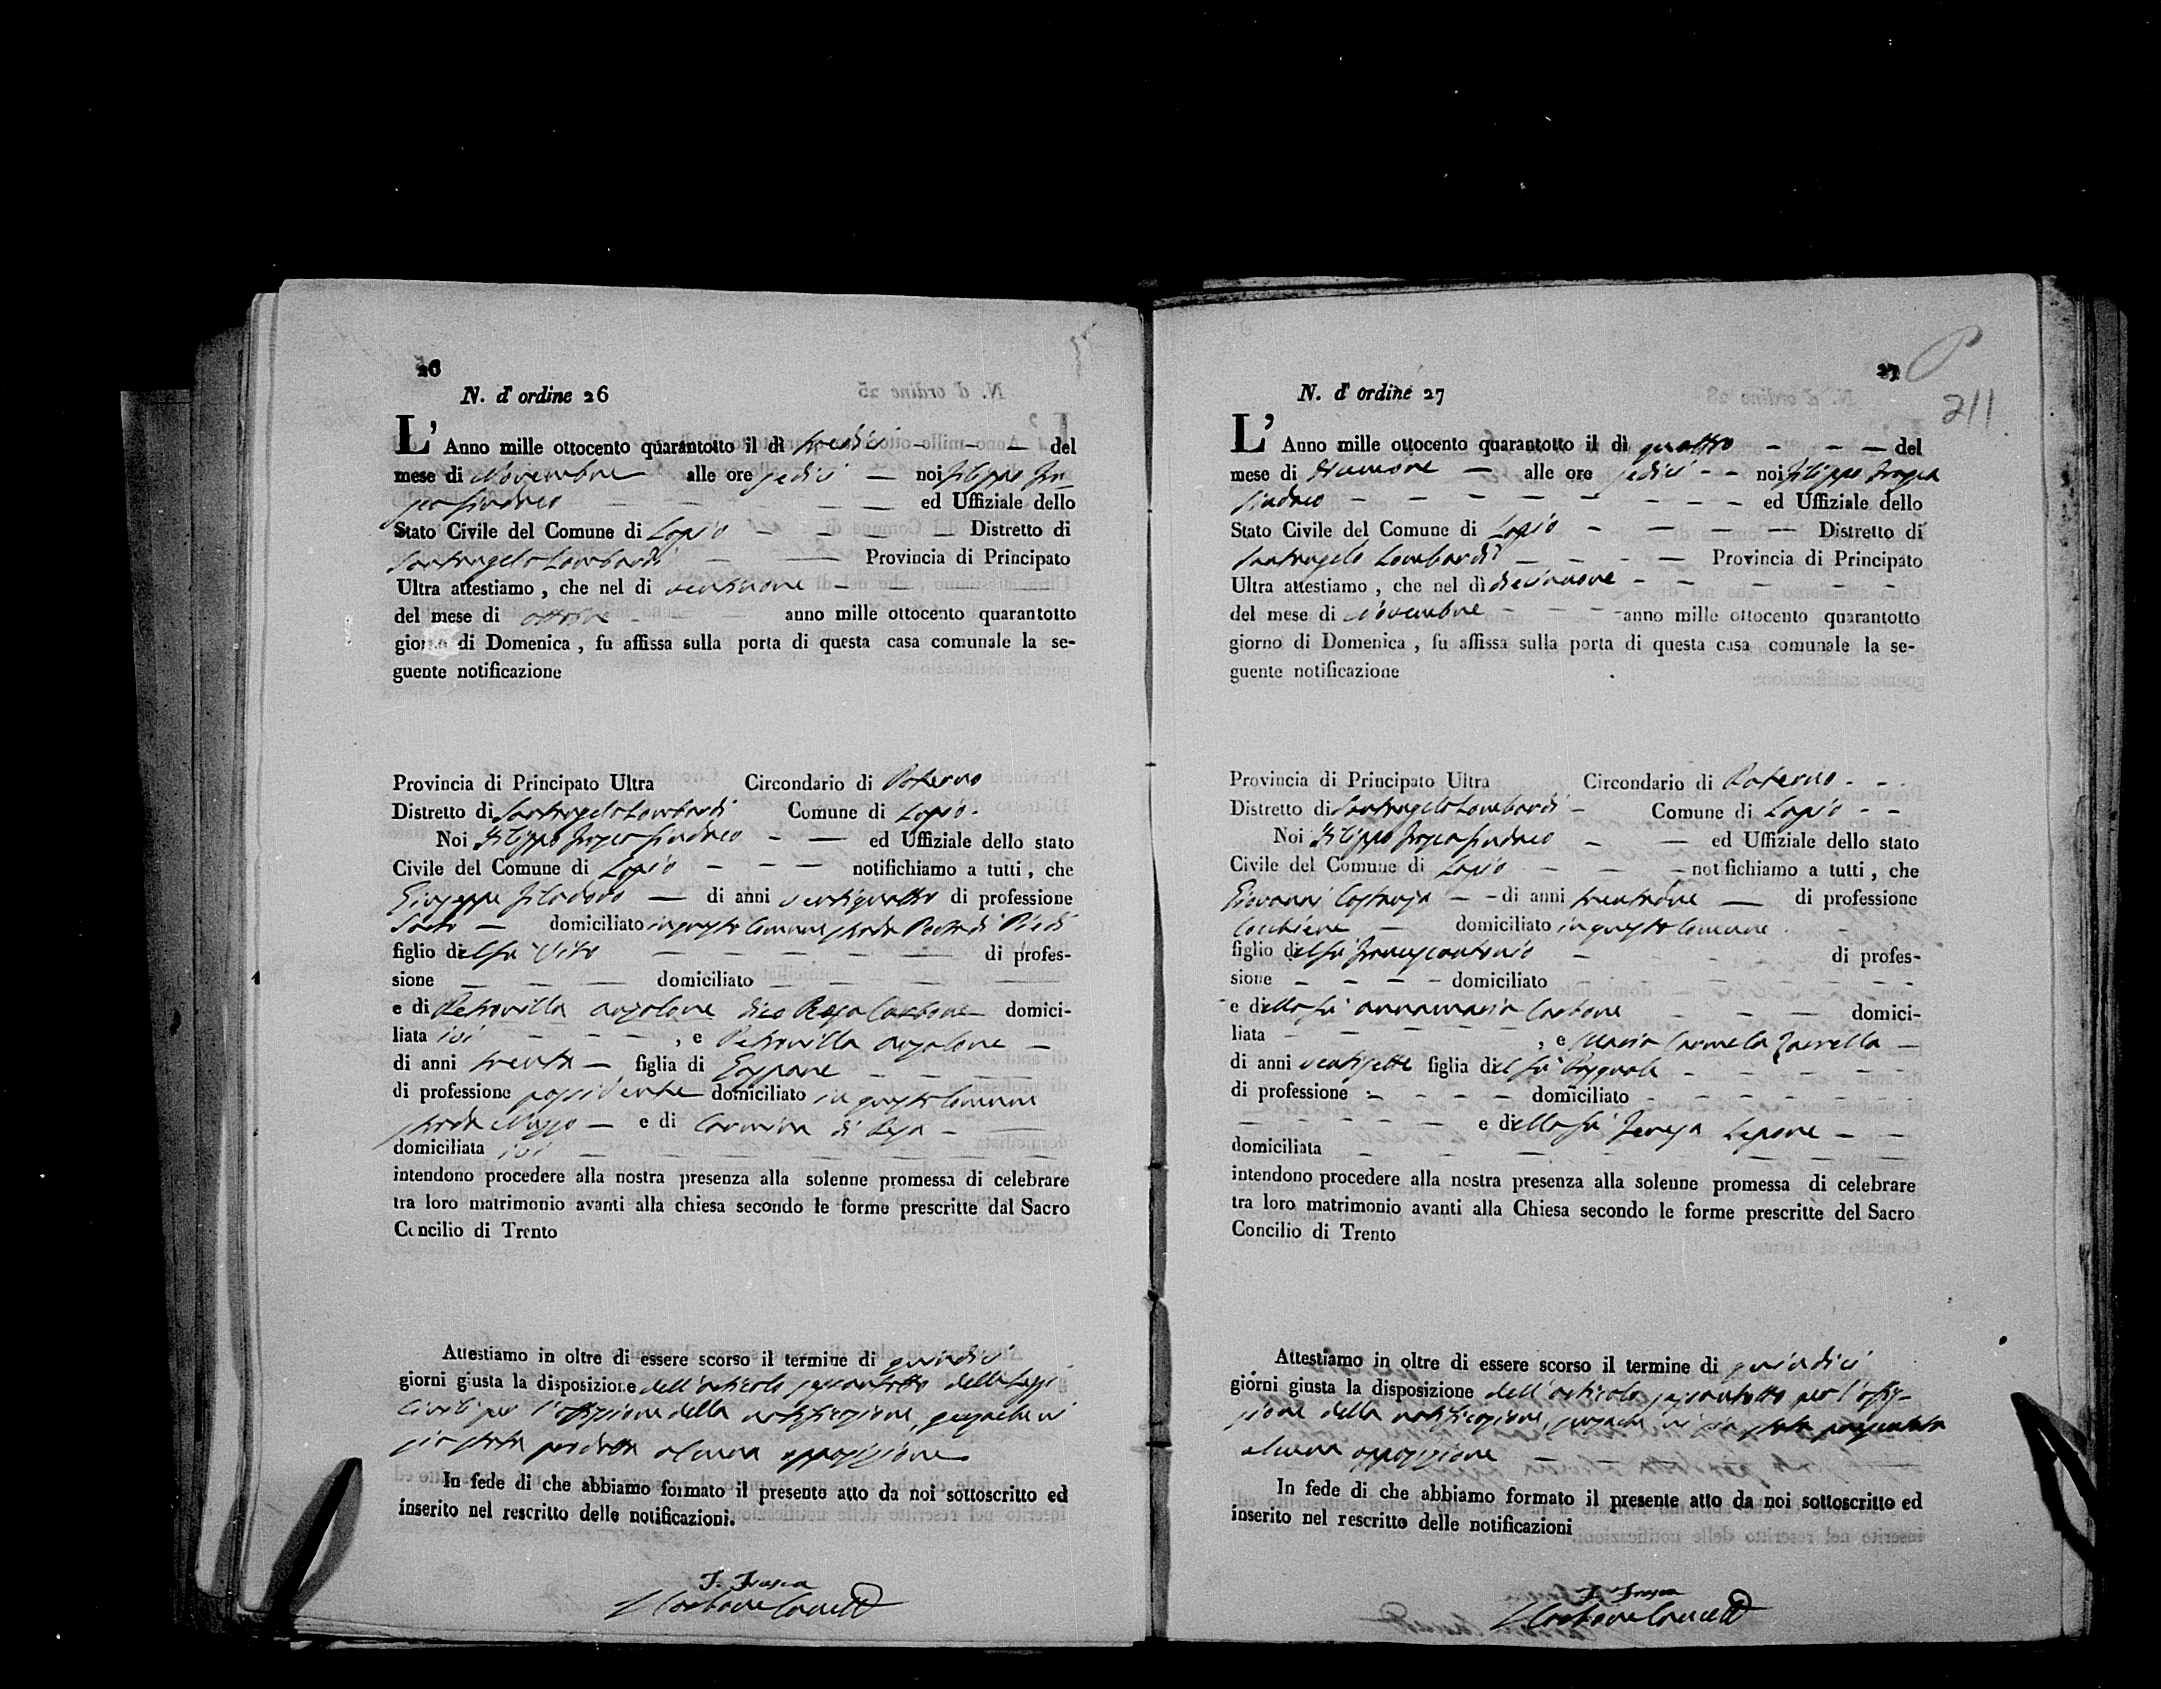 26
N. d' ordine 26
L' Anno mille ottocento quarantotto il dì tredici - - - del
mese di Novembre alle ore sedici - noi Filippo Fra-
sca Sindaco - - - - - ed Uffiziale dello
Stato Civile del Comune di Lapio - - - - Distretto di
Santangelo Lombardi - - Provincia di Principato
Ultra attestiamo , che nel di ventinove - - -
del mese di ottobre - - anno mille ottocento quarantotto
giorno di Domenica , fu affissa sulla porta di questa casa comunale la se-
guente notificazione
Provincia di Principato Ultra Circondario di Paterno
Distretto di Santangelo Lombardi Comune di Lapio.
Noi Filippo Frasca Sindaco - - ed Uffiziale dello stato
Civile del Comune di Lapio - - - notifichiamo a tutti , che
Giuseppe Filadoro - di anni ventiquattro di professione
Sarto - domiciliato in questo Comune strada Piedi
figlio del fu Vito - - - - - di profes-
sione - - - domiciliato - - - -
e di Petronilla dico Rosa Carbone domici-
liata ivi - - - - , e Petronilla -
di anni trenta - figlia di Gaspare - - - -
di professione possidente domiciliato in questo Comune
strada - e di Carmina di - -
domiciliata ivi - - - - - - -
intendono procedere alla nostra presenza alla solenne promessa di celebrare
tra loro matrimonio avanti alla chiesa secondo le forme prescritte dal Sacro
Concilio di Trento
Attestiamo in oltre di essere scorso il termine di quindici
giorni giusta la disposizione dell'articolo sessantotto delle Leggi
Civili per l'affissione della notificazione, senzache vi
sia stata prodotta alcuna opposizione
In fede di che abbiamo formato il presente atto da noi sottoscritto ed
inserito nel rescritto delle notificazioni.
F. Frasca
Carbone Cancell
27
211
N. d' ordine 27
L' Anno mille ottocento quarantotto il dì quattro - - - del
mese di Dicembre - alle ore sedici - - noi Filippo Frasca
Sindaco - - - - - - - - - ed Uffiziale dello
Stato Civile del Comune di Lapio - - - - Distretto di
Santangelo Lombardi - - - - Provincia di Principato
Ultra attestiamo , che nel dì diecinnove - - - - -
del mese di Novembre - - - - anno mille ottocento quarantotto
giorno di Domenica , fu affissa sulla porta di questa casa comunale la se-
guente notificazione
Provincia di Principato Ultra Circondario di Paterno - - -
Distretto di Santangelo Lombardi - Comune di Lapio - -
Noi Filippo Frasca Sindaco - - ed Uffiziale dello stato
Civile del Comune di Lapio - - - notifichiamo a tutti , che
Giovanni - - di anni trentadue - di professione
- domiciliato in questo Comune -
figlio del fu Francescantonio - - - di profes-
sione - - - - domiciliato - - - - - -
e della fu Annamaria Carbone - - - domici-
liata - - - - - - , e Maria Carmela Zarrella -
di anni ventisette figlia del fu Pasquale - - - - -
di professione - - - - domiciliato - - - - - -
- - - - - e della fu Teresa Lepore - -
domiciliata - - - - - - - - -
intendono procedere alla nostra presenza alla solenne promessa di celebrare
tra loro matrimonio avanti alla Chiesa secondo le forme prescritte del Sacro
Concilio di Trento
Attestiamo in oltre di essere scorso il termine di quindici
giorni giusta la disposizione dell'articolo sessantotto per l'affis-
sione della notificazione, senzache vi sia stata presentata
alcuna opposizione - -
In fede di che abbiamo formato il presente atto da noi sottoscritto ed
inserito nel rescritto delle notificazioni
F. Frasca
Carbone Cancell